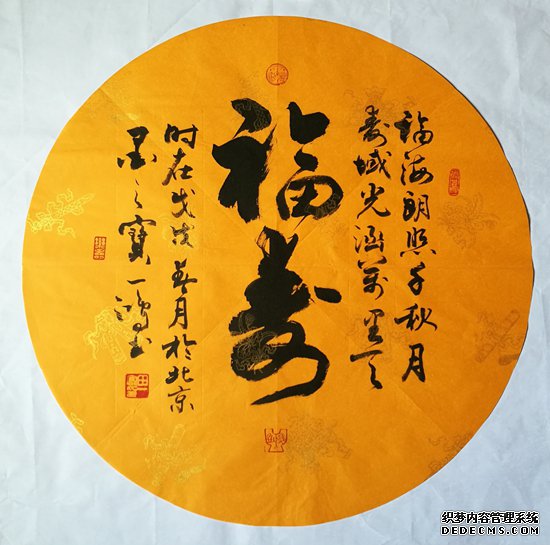 福海朗照千秋月
寿域光涵萬里天
福寿
时在戊戌春月於北京
墨之寶一鸿书
织梦内容管理系统
DEDECMS.COM